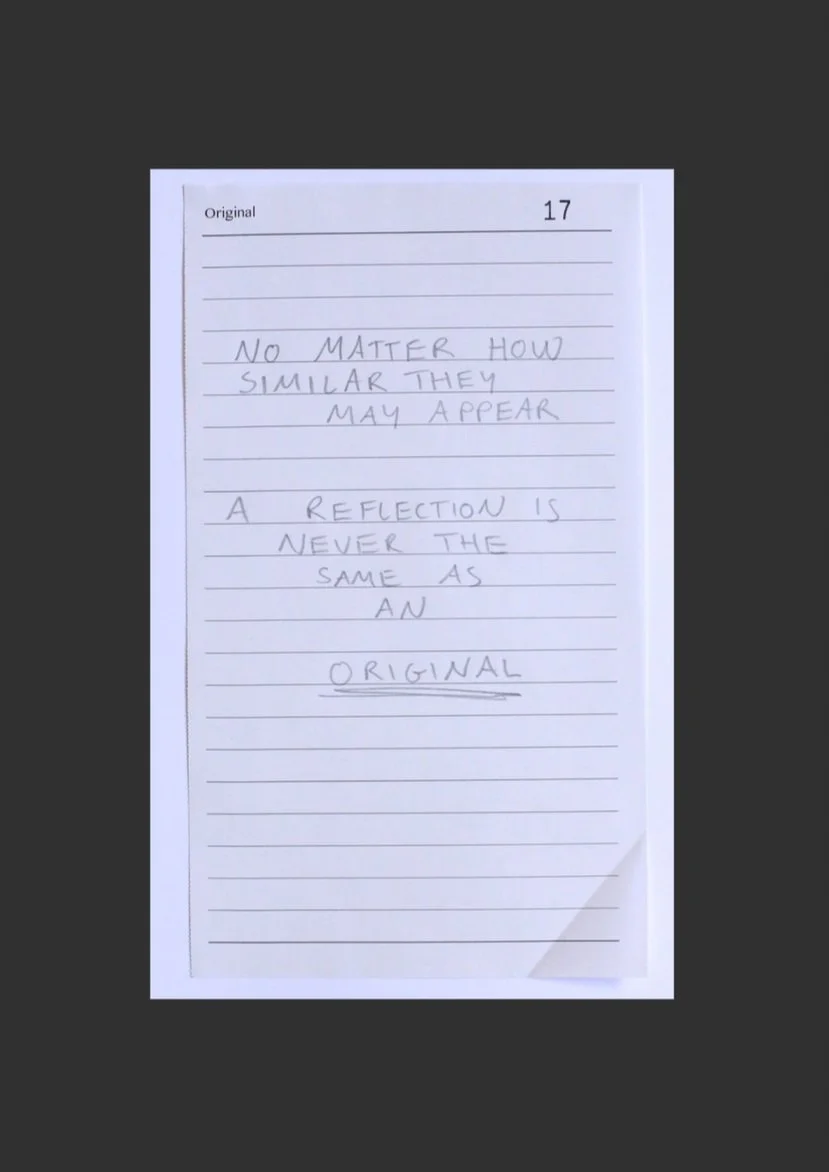 Original 17
NO MATTER HOW
SIMILAR THEY
MAY APPEAR
A REFLECTION IS
NEVER THE
SAME AS
AN
ORIGINAL